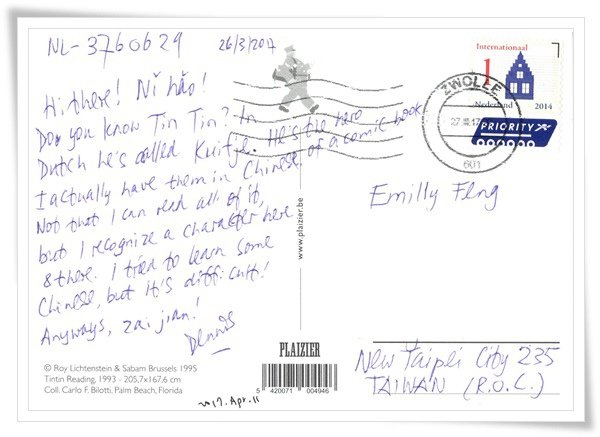 NL-3760629
26/3/2017
Hi there! Nǐ hǎo!
Do you know Tin Tin? In
Dutch he's called Kuifje. He's the hero
of a comic book
I actually have them in Chinese.
Not that I can read all of it,
but I recognize a character here
& there. I tried to learn some
Chinese, but it's difficult!
Anyways, zai jian!
Dennis
© Roy Lichtenstein & Sabam Brussels 1995
Tintin Reading, 1993 - 205,7x167,6 cm
Coll. Carlo F. Bilotti, Palm Beach, Florida
www.plaizier.be
PLAIZIER
5 420071 004946
2017. Apr. 11
Internationaal
1
Nederland 2014
ZWOLLE
PRIORITY
Emilly Feng
New Taipei City 235
TAIWAN (R.O.C.)